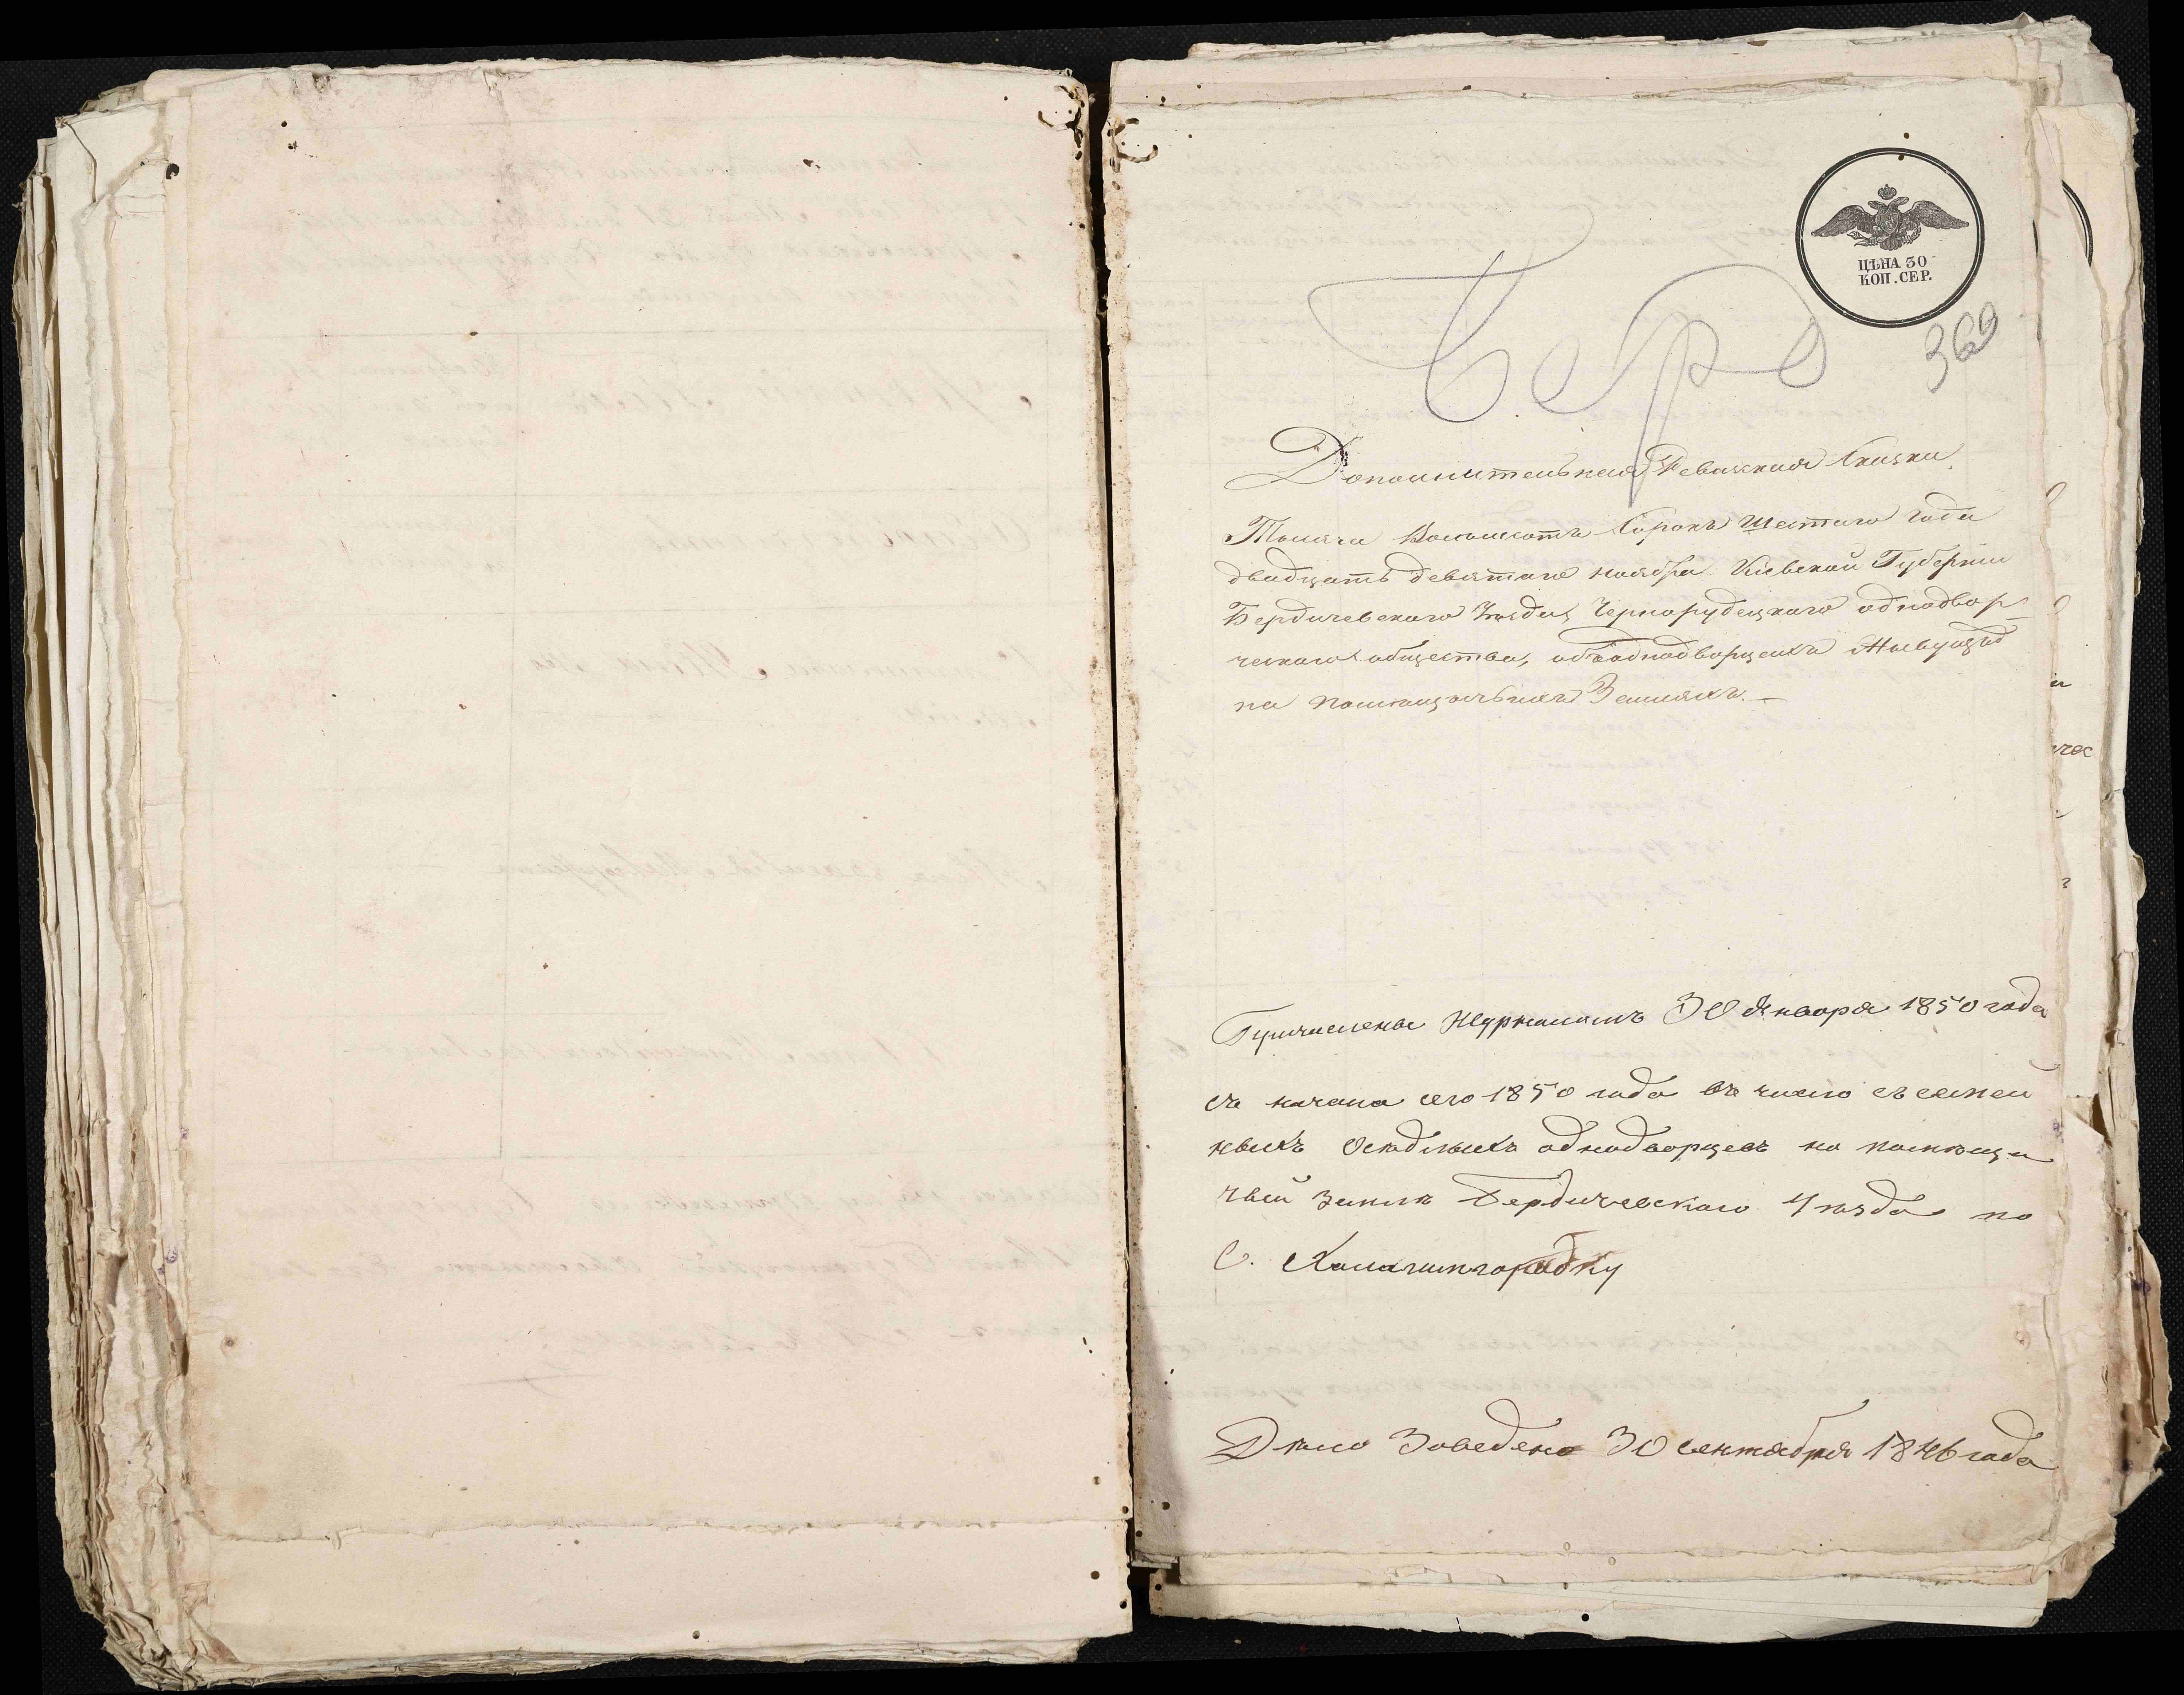 ЦѢНА 30
КОП. СЕР.
369
Бер
Дополнительная Ревизская Сказка
Тысяча Восемсотъ Сорокъ Шестаго года
двадцать девятаго ноября Кіевской Губерніи
Бердичевскаго Уѣзда, Чернорудецкаго однодвор-
ческаго общества, объ однодворцахъ Живущихъ
на помѣщичьихъ Земляхъ.—
Причислены Журналомъ 30 Января 1850 года
съ начала сего 1850 года въ число съ семей
ныхъ Осѣдлыхъ однодворцевъ на помѣщи
чьей землѣ Бердичевскаго Уѣзда по
С. Халаимгородку
Дѣло Заведено 30 сентября 1846 года